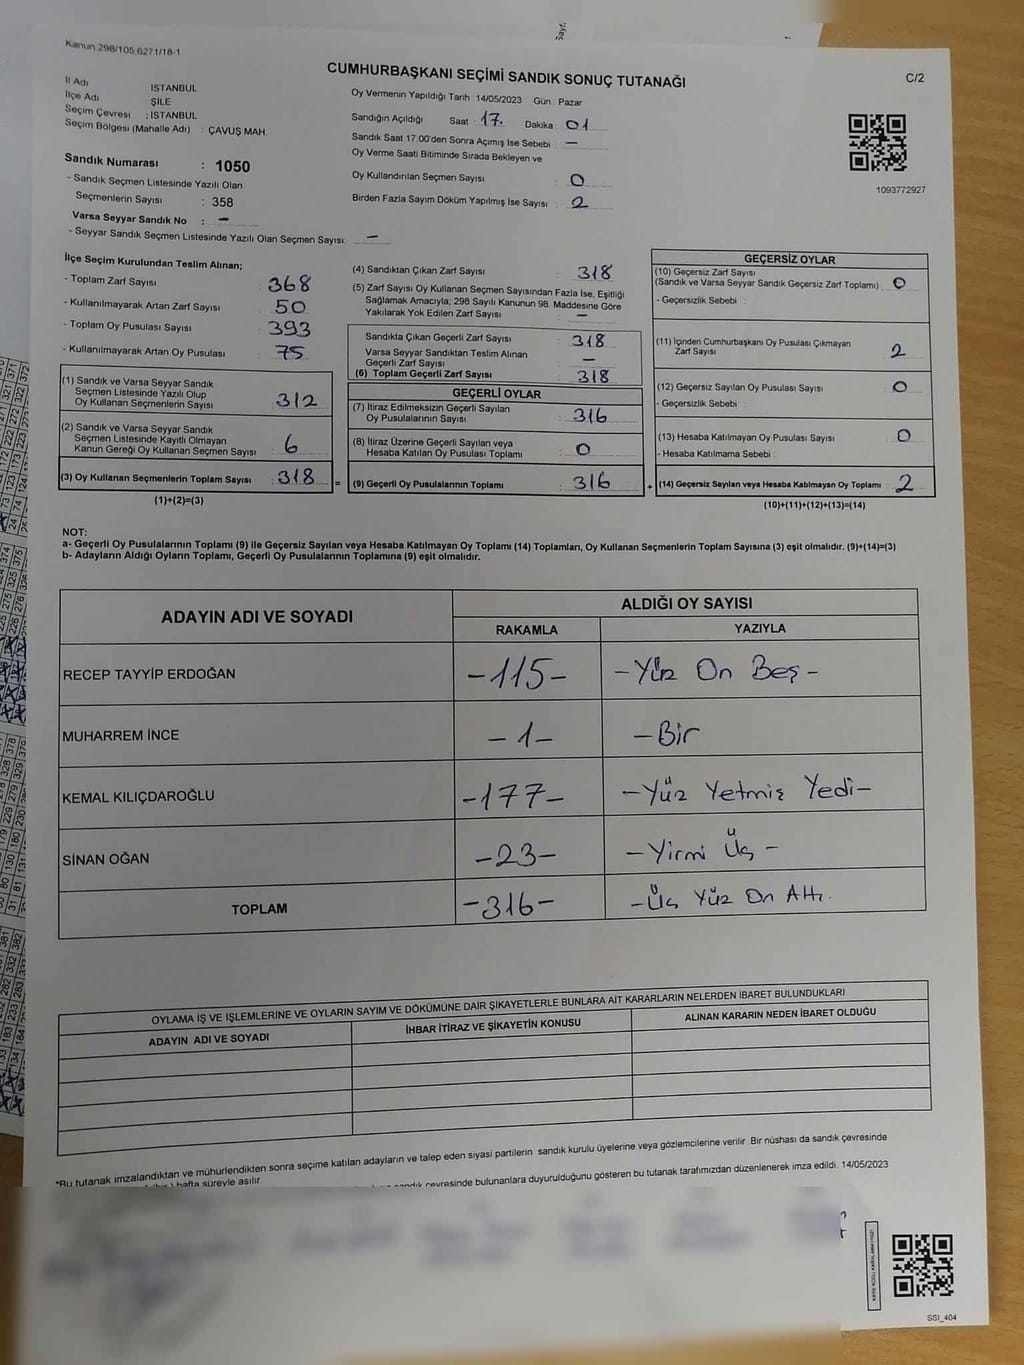 Kanun 298/105,6271/18-1
CUMHURBAŞKANI SEÇİMİ SANDIK SONUÇ TUTANAĞI
C/2
İl Adı İSTANBUL
İlçe Adı ŞİLE
Seçim Çevresi : İSTANBUL
Seçim Bölgesi (Mahalle Adı) : ÇAVUŞ MAH.
Sandık Numarası : 1050
- Sandık Seçmen Listesinde Yazılı Olan
Seçmenlerin Sayısı : 358
Varsa Seyyar Sandık No : -
- Seyyar Sandık Seçmen Listesinde Yazılı Olan Seçmen Sayısı: -
Oy Vermenin Yapıldığı Tarih : 14/05/2023 Gün : Pazar
Sandığın Açıldığı Saat : 17. Dakika : 01
Sandık Saat 17:00'den Sonra Açılmış İse Sebebi : -
Oy Verme Saati Bitiminde Sırada Bekleyen ve
Oy Kullandırılan Seçmen Sayısı : 0
Birden Fazla Sayım Döküm Yapılmış İse Sayısı : 2
1093772927
İlçe Seçim Kurulundan Teslim Alınan;
- Toplam Zarf Sayısı : 368
- Kullanılmayarak Artan Zarf Sayısı : 50
- Toplam Oy Pusulası Sayısı : 393
- Kullanılmayarak Artan Oy Pusulası : 75
(1) Sandık ve Varsa Seyyar Sandık
Seçmen Listesinde Yazılı Olup
Oy Kullanan Seçmenlerin Sayısı : 312
(2) Sandık ve Varsa Seyyar Sandık
Seçmen Listesinde Kayıtlı Olmayan
Kanun Gereği Oy Kullanan Seçmen Sayısı : 6
(3) Oy Kullanan Seçmenlerin Toplam Sayısı : 318 =
(1)+(2)=(3)
(4) Sandıktan Çıkan Zarf Sayısı : 318
(5) Zarf Sayısı Oy Kullanan Seçmen Sayısından Fazla İse, Eşitliği
Sağlamak Amacıyla, 298 Sayılı Kanunun 98. Maddesine Göre
Yakılarak Yok Edilen Zarf Sayısı : -
Sandıkta Çıkan Geçerli Zarf Sayısı : 318
Varsa Seyyar Sandıktan Teslim Alınan
Geçerli Zarf Sayısı : -
(6) Toplam Geçerli Zarf Sayısı : 318
GEÇERLİ OYLAR
(7) İtiraz Edilmeksizin Geçerli Sayılan
Oy Pusulalarının Sayısı : 316
(8) İtiraz Üzerine Geçerli Sayılan veya
Hesaba Katılan Oy Pusulası Toplamı : 0
(9) Geçerli Oy Pusulalarının Toplamı : 316 +
GEÇERSİZ OYLAR
(10) Geçersiz Zarf Sayısı
(Sandık ve Varsa Seyyar Sandık Geçersiz Zarf Toplamı) : 0
- Geçersizlik Sebebi :
(11) İçinden Cumhurbaşkanı Oy Pusulası Çıkmayan
Zarf Sayısı : 2
(12) Geçersiz Sayılan Oy Pusulası Sayısı : 0
- Geçersizlik Sebebi :
(13) Hesaba Katılmayan Oy Pusulası Sayısı : 0
- Hesaba Katılmama Sebebi :
(14) Geçersiz Sayılan veya Hesaba Katılmayan Oy Toplamı : 2
(10)+(11)+(12)+(13)=(14)
NOT:
a- Geçerli Oy Pusulalarının Toplamı (9) ile Geçersiz Sayılan veya Hesaba Katılmayan Oy Toplamı (14) Toplamları, Oy Kullanan Seçmenlerin Toplam Sayısına (3) eşit olmalıdır. (9)+(14)=(3)
b- Adayların Aldığı Oyların Toplamı, Geçerli Oy Pusulalarının Toplamına (9) eşit olmalıdır.
ADAYIN ADI VE SOYADI ALDIĞI OY SAYISI
RAKAMLA YAZIYLA
RECEP TAYYİP ERDOĞAN -115- -Yüz On Beş-
MUHARREM İNCE -1- -Bir
KEMAL KILIÇDAROĞLU -177- -Yüz Yetmiş Yedi-
SİNAN OĞAN -23- -Yirmi Üç-
TOPLAM -316- -Üç Yüz On Altı.
OYLAMA İŞ VE İŞLEMLERİNE VE OYLARIN SAYIM VE DÖKÜMÜNE DAİR ŞİKAYETLERLE BUNLARA AİT KARARLARIN NELERDEN İBARET BULUNDUKLARI
ADAYIN ADI VE SOYADI İHBAR İTİRAZ VE ŞİKAYETİN KONUSU ALINAN KARARIN NEDEN İBARET OLDUĞU
*Bu tutanak imzalandıktan ve mühürlendikten sonra seçime katılan adayların ve talep eden siyasi partilerin sandık kurulu üyelerine veya gözlemcilerine verilir. Bir nüshası da sandık çevresinde
hafta süreyle asılır.
sandık çevresinde bulunanlara duyurulduğunu gösteren bu tutanak tarafımızdan düzenlenerek imza edildi. 14/05/2023
SSI_404